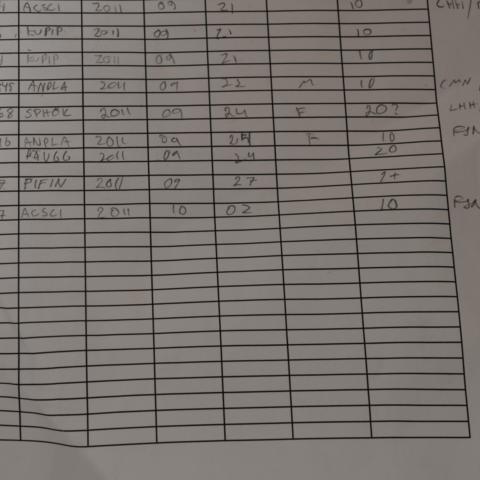 ACSCI 2011 09 21 10
EUPIP 2011 09 21 10
EUPIP 2011 09 21 10
ANDLA 2011 09 22 M 10 CMN
68 SPHOK 2011 09 24 F 20? LHH
ANPLA 2011 09 24 F 10
PAUGG 2011 09 24 20
PIFIN 2011 09 27 9+
7 ACSCI 2011 10 02 10